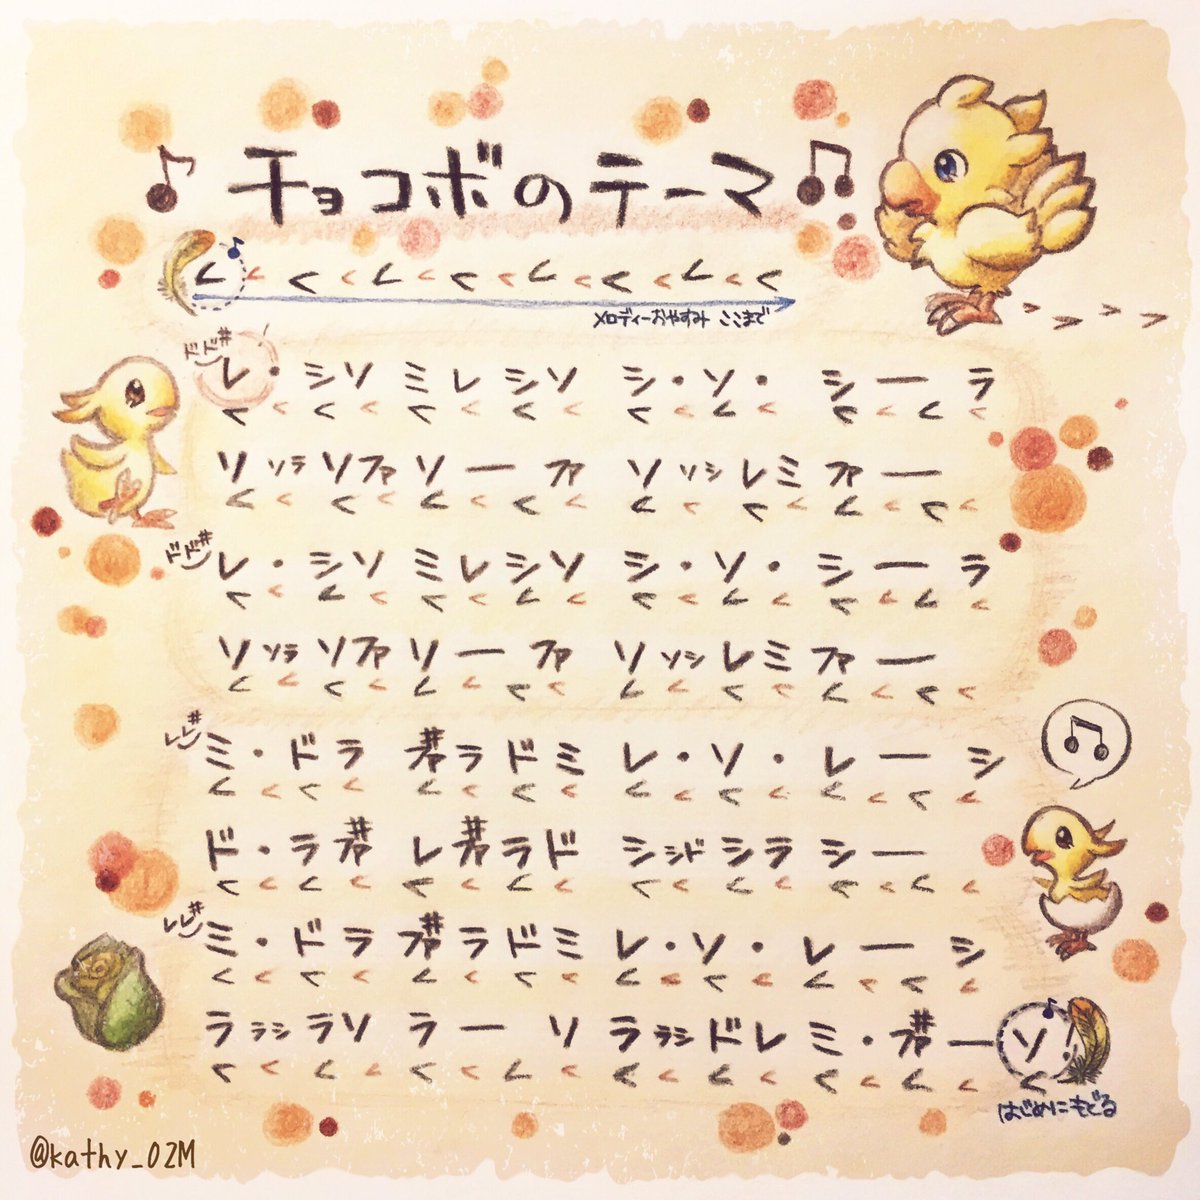 チョコボのテーマ
メロディーおやすみ ここまで
ドド#
レ・シソ ミレシソ シ・ソ・ シーラ
ソソラソファソーファ ソソシレミファー
ドド#
レ・シソ ミレシソ シ・ソ・ シーラ
ソソラソファソーファ ソソシレミファー
レレ#
ミ・ドラ ファ#ラドミ レ・ソ・レーシ
ド・ラファ# レファ#ラド シシドシラシー
レレ#
ミ・ドラ ファ#ラドミ レ・ソ・レーシ
ララシラソ ラーソ ララシドレミ・ファ#ーソ
はじめにもどる
@kathy_02M